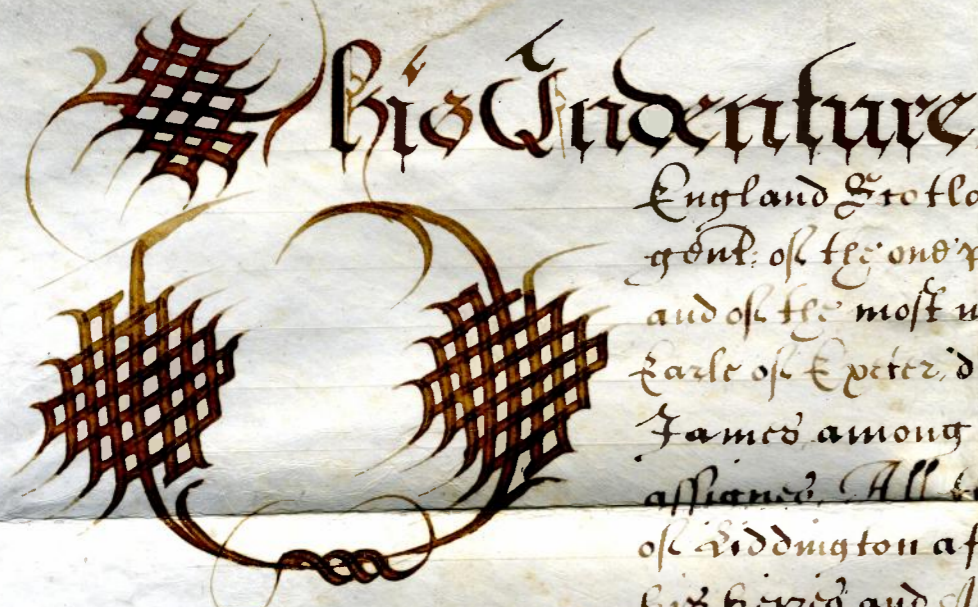 This Indenture
England Scotla
gent: of the one p
and of the most n
Earle of Exeter, d
James among
assignes, All t
of Liddington af
his heires and A